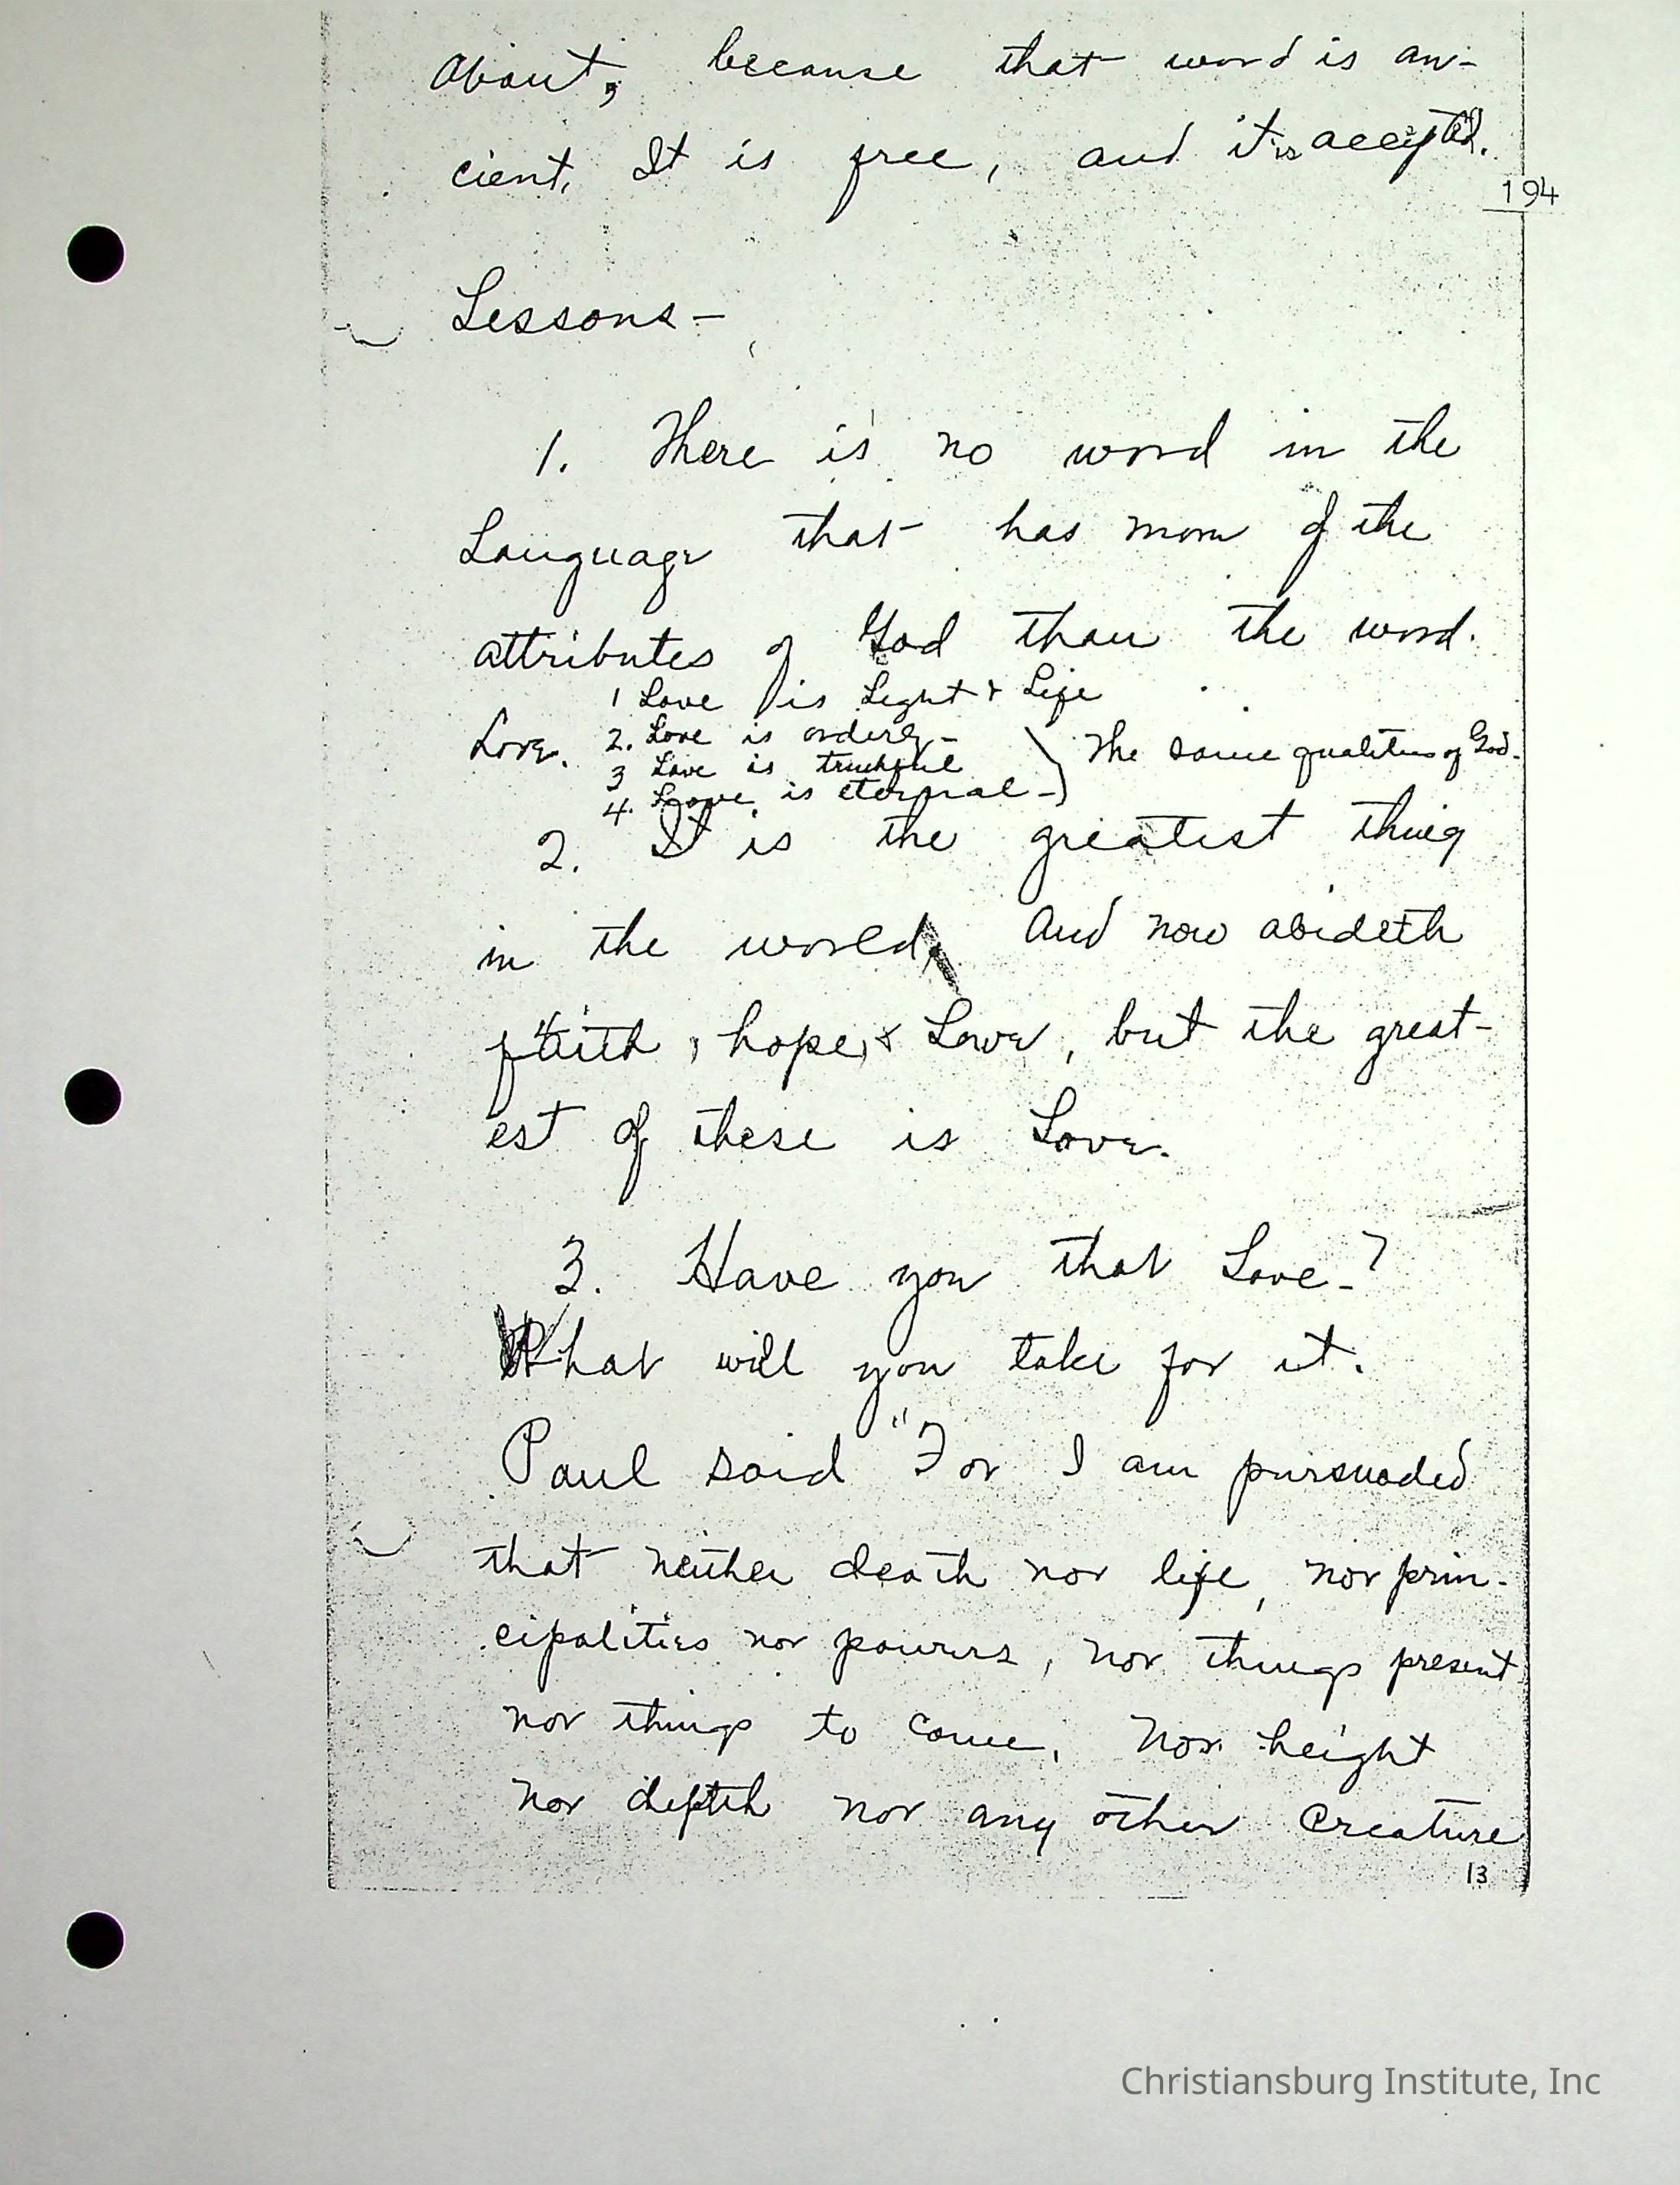 about, because that word is an-
cient. It is free, and it is accepted.
194
Lessons—
1. There is no word in the
Language that has more of the
attributes of God than the word
1 Love is Light & Life
Love. 2. Love is orderly— The same qualities of God.
3 Love is truthful
4. Love is eternal—
2. It is the greatest thing
in the world. And now abideth
faith, hope, & Love, but the great-
est of these is Love.
3. Have you that Love—?
What will you take for it.
Paul said "For I am pursuaded
that neither death nor life, nor prin-
cipalities nor powers, nor things present
nor things to come, nor height
nor depth nor any other creature
13
Christiansburg Institute, Inc